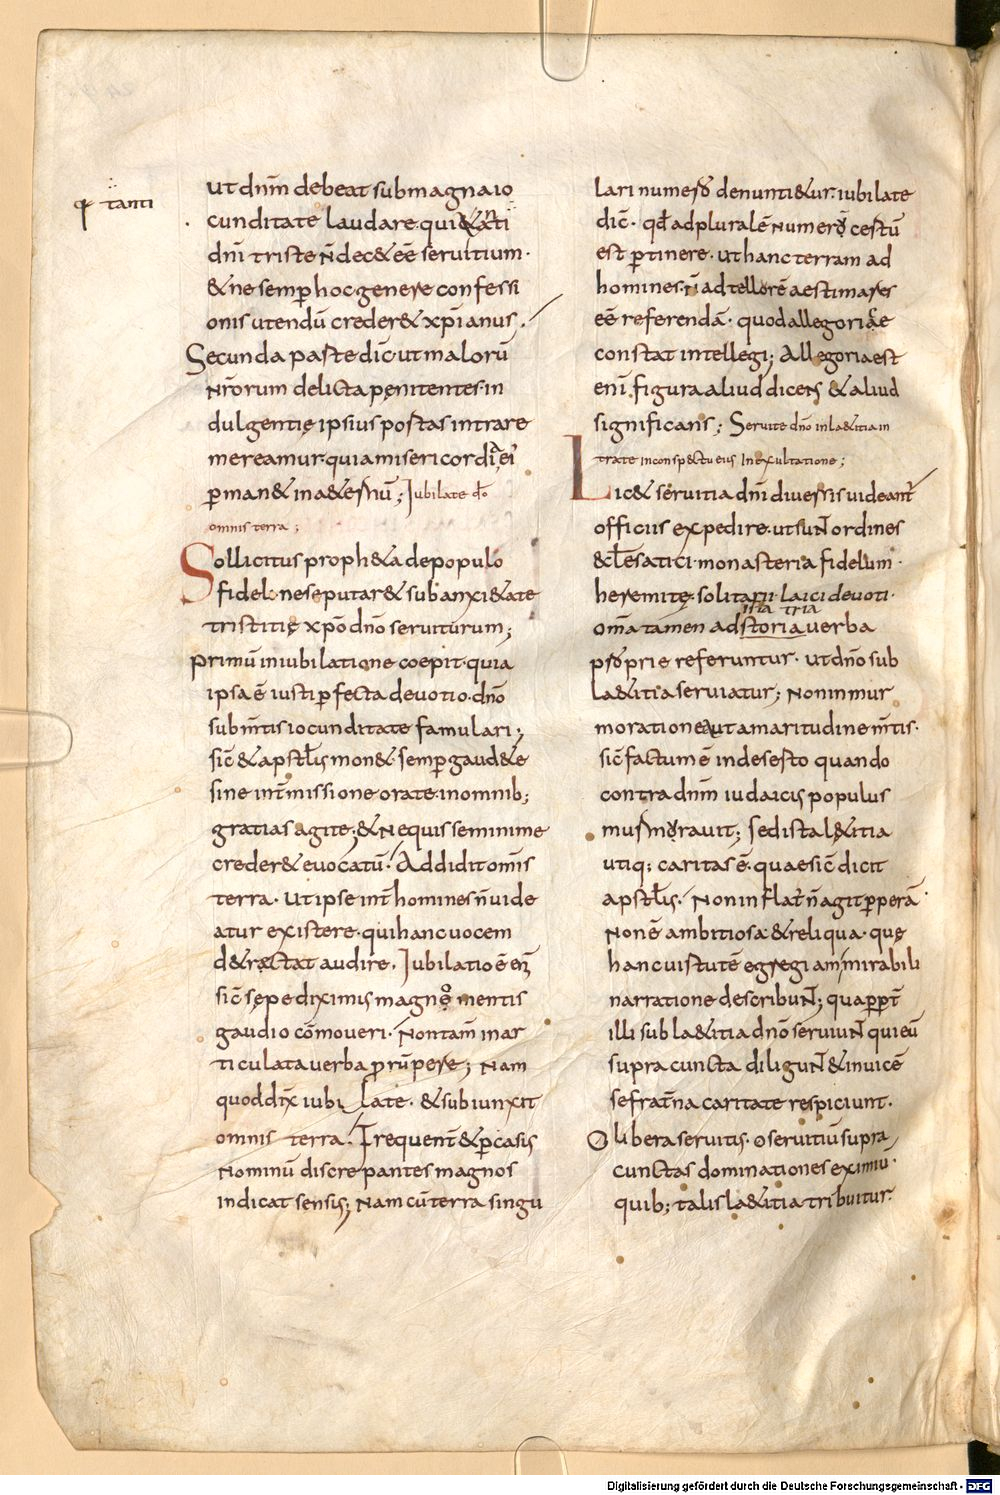 qr tanti
ut dnm̄ debeat sub magna io
cunditate laudare. qui &anti
dnī triste n̄ dec& eē seruitium.
& ne semp̱ hoc genere confessi
onis utendū creder& xp̄ianus.
Secunda parte dic̄ ut malorū
nr̄orum delicta pęnitentes. in
dulgentię ipsius portas intrare
mereamur. quia misericordia ei'
p̱man& in a&ernū; Iubilate dō
omnis terra;
Sollicitus proph&a de populo
fideli. ne se putar& sub anxi&ate
tristitię xp̄o dn̄o seruiturum;
primū in iubilatione coepit. quia
ipsa ē iusti p̱fecta deuotio. dn̄o
sub m̄tis iocunditate famulari;
sic̄ & apstl̄s mon&. semp̱ gaud&e
sine int̄missione orate. in omnib;
gratias agite; & ne quis se minime
creder& euocatū. Addidit omīs
terra. ut ipse int̄ homines n̄ uide
atur existere. qui hanc uocem
d&ractat audire. Iubilatio ē eni3
sic̄ sępe diximus magno mentis
gaudio cōmoueri. Non tam̄ inar
ticulata uerba prūpere; Nam
quod dix̄ iubilate. & subiunxit
omnis terra. Frequent̄ & p̱ casus
nominū discrepantes magnos
indicat sensus; Nam cū terra singu
lari numero denunti&ur. iubilate
dic̄. qd̄ ad pluralē numerū certū
est p̱tinere. ut hanc terram ad
homines. n̄ ad tellorē aestimares
eē referendā. quod allegoriae
constat intellegi; Allegoria est
enī figura aliud dicens & aliud
significans; Seruite dn̄o in la&itia in
trate in conspectu eius In exultatione;
Lic& seruitia dnī diuersis uideant̄
officiis expedire. ut sunt ordines
&cl̄esiatici. monasteria fidelium.
heremitę. solitarii. laici deuoti.
ria tria
omā tamen ad storia uerba
proprie referuntur. ut dn̄o sub
la&itia seruiatur; Non in mur
moratione aut amaritudine m̄tis.
sic̄ factum ē in deserto quando
contra dnm̄ iudaicus populus
murmorauit; sed ista l&itia
utiq; caritas ē. quae sic̄ dicit
apstl̄s. Non inflat̄ n̄ agit p̱perā.
Non ē ambitiosa. & reliqua. quę
hanc uirtutē egregia mirabili
narratione describunt; qua p̱pt̄
illi sub la&itia dn̄o seruiunt qui eū
supra cuncta diligunt & inuicē
se frat̄na caritate respiciunt.
O libera seruitus. o seruitiū supra
cunctas dominationes eximiū.
quib; talis la&itia tribuitur.
Digitalisierung gefördert durch die Deutsche Forschungsgemeinschaft - DFG